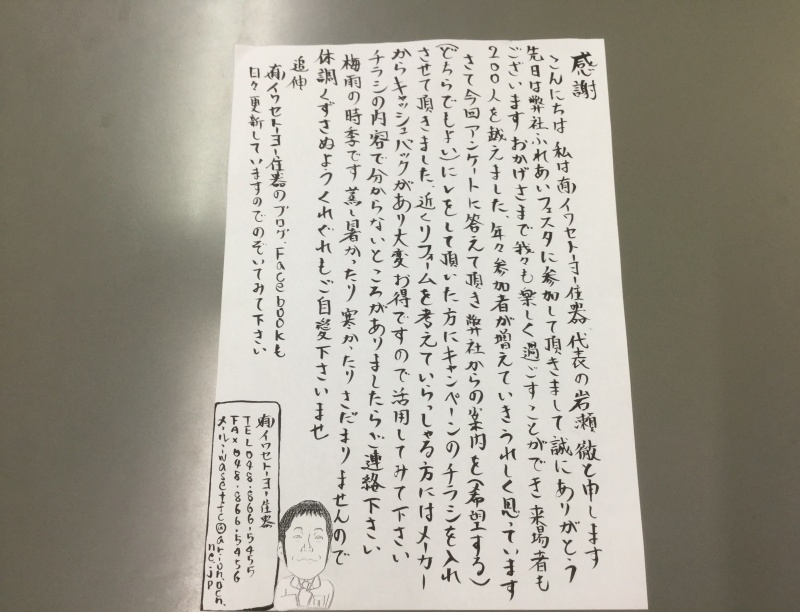 感謝
こんにちは 私は(有)イワセトーヨー住器 代表の岩瀬 徹と申します
先日は弊社ふれあいフェスタに参加して頂きまして誠にありがとう
ございます おかげさまで我々も楽しく過ごすことができ来場者も
200人を越えました、年々参加者が増えていきうれしく思っています
さて今回アンケートに答えて頂き弊社からの案内を(希望する)
(どちらでもよい)にレをして頂いた方にキャンペーンのチラシを入れ
させて頂きました、近くリフォームを考えていらっしゃる方にはメーカー
からキャッシュバックがあり大変お得ですので活用してみて下さい
チラシの内容で分からないところがありましたらご連絡下さい
梅雨の時季です 蒸し暑かったり寒かったりさだまりませんので
体調くずさぬようくれぐれもご自愛下さいませ
追伸
(有)イワセトーヨー住器のブログ、Facebookも
日々更新していますのでのぞいてみて下さい
(有)イワセトーヨー住器
TEL 048-866-5455
FAX 048-866-5456